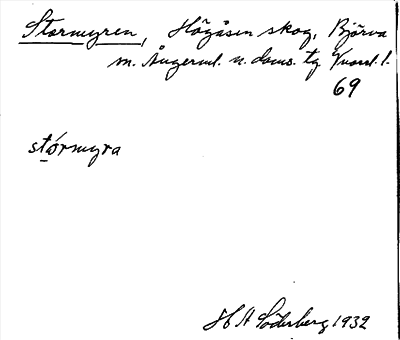 Stormyren, Högåsen skog, Björna
m. Ångerml. n. doms. tg Vnorrl. l.
69
stórmyra
H A Söderberg 1932